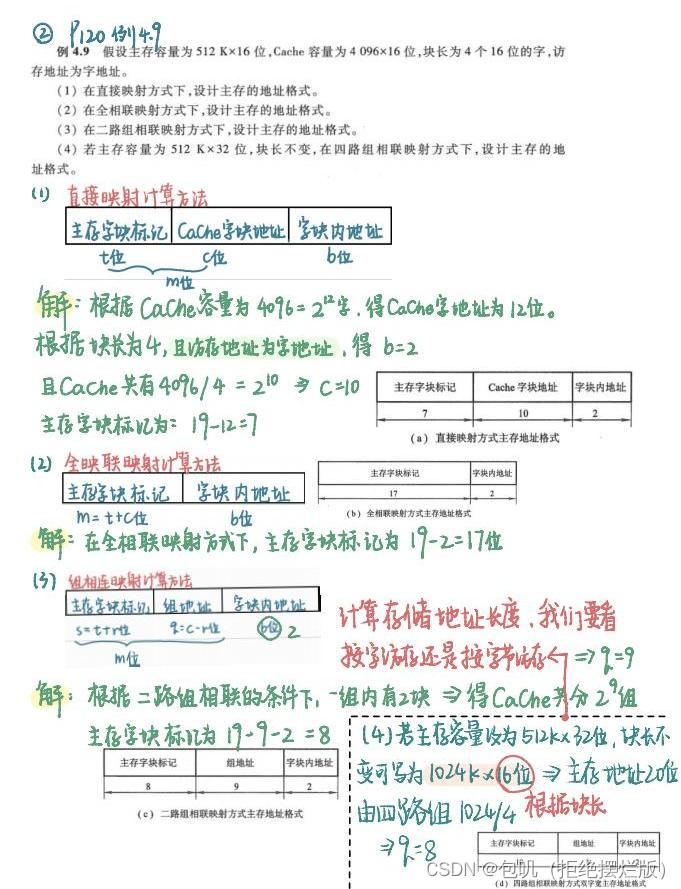 ② P120 例4.9
例 4.9 假设主存容量为 512 K×16 位,Cache 容量为 4 096×16 位,块长为 4 个 16 位的字,访
存地址为字地址。
(1) 在直接映射方式下,设计主存的地址格式。
(2) 在全相联映射方式下,设计主存的地址格式。
(3) 在二路组相联映射方式下,设计主存的地址格式。
(4) 若主存容量为 512 K×32 位,块长不变,在四路组相联映射方式下,设计主存的地
址格式。
(1) 直接映射计算方法
主存字块标记 CaChe字块地址 字块内地址
t位 c位 b位
m位
解:根据CaChe容量为4096=2¹²字,得CaChe字地址为12位。
根据块长为4,且访存地址为字地址,得 b=2
且CaChe共有4096/4=2¹⁰ ⇒ C=10
主存字块标记为:19-12=7
主存字块标记 Cache 字块地址 字块内地址
7 10 2
(a) 直接映射方式主存地址格式
(2) 全映联映射计算方法
主存字块标记 字块内地址
m=t+c位 b位
主存字块标记 字块内地址
17 2
(b) 全相联映射方式主存地址格式
解:在全相联映射方式下,主存字块标记为 19-2=17位
(3) 组相连映射计算方法
主存字块标记 组地址 字块内地址
s=t+r位 q=c-r位 b位 2
m位
计算存储地址长度,我们要看
按字访存还是按字节访存 ⇒q=9
解:根据二路组相联的条件下,一组内有2块 ⇒得CaChe共分2⁹组
主存字块标记为 19-9-2=8
主存字块标记 组地址 字块内地址
8 9 2
(c) 二路组相联映射方式主存地址格式
(4)若主存容量改为512K×32位,块长不
变可写为1024K×16位 ⇒主存地址20位
由四路组 1024/4 根据块长
⇒q=8
主存字块标记 组地址 字块内地址
CSDN @包叽(拒绝摆烂版)
(d) 四路组相联映射方式双字宽主存地址格式